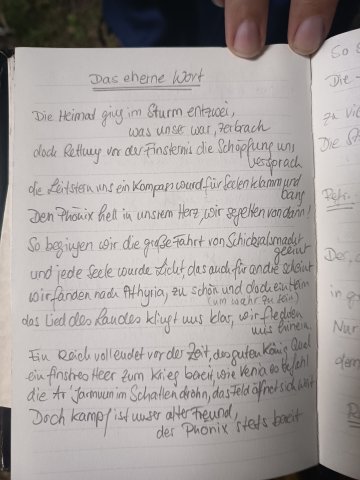 Das eherne Wort
Die Heimat ging im Sturm entzwei,
was unser war, zerbrach
doch Rettung vor der Finsternis die Schöpfung uns
versprach
die Leitstern uns ein Kompass wurd für Seelen klamm und
bang
Den Phönix hell in unsrem Herz, wir segelten von dann!
So begingen wir die große Fahrt von Schicksalsmacht
geeint
und jede Seele wurde Licht, das auch für andre scheint
wir fanden nach Athyria, zu schön und doch ein Heim
(um wahr zu sein)
das Lied des Landes klingt uns klar, wir flechten
uns hinein,
Ein Reich vollendet vor der Zeit, des guten König Qual
ein finstres Heer zum Krieg bereit, wie Xenia es befahl
die Ar' Jarmuum im Schatten drohn, das Feld öffnet sich weit
Doch Kampf ist unser alter Freund,
der Phönix stets bereit
So s
Die
zu vie
Die St
Der,
in g